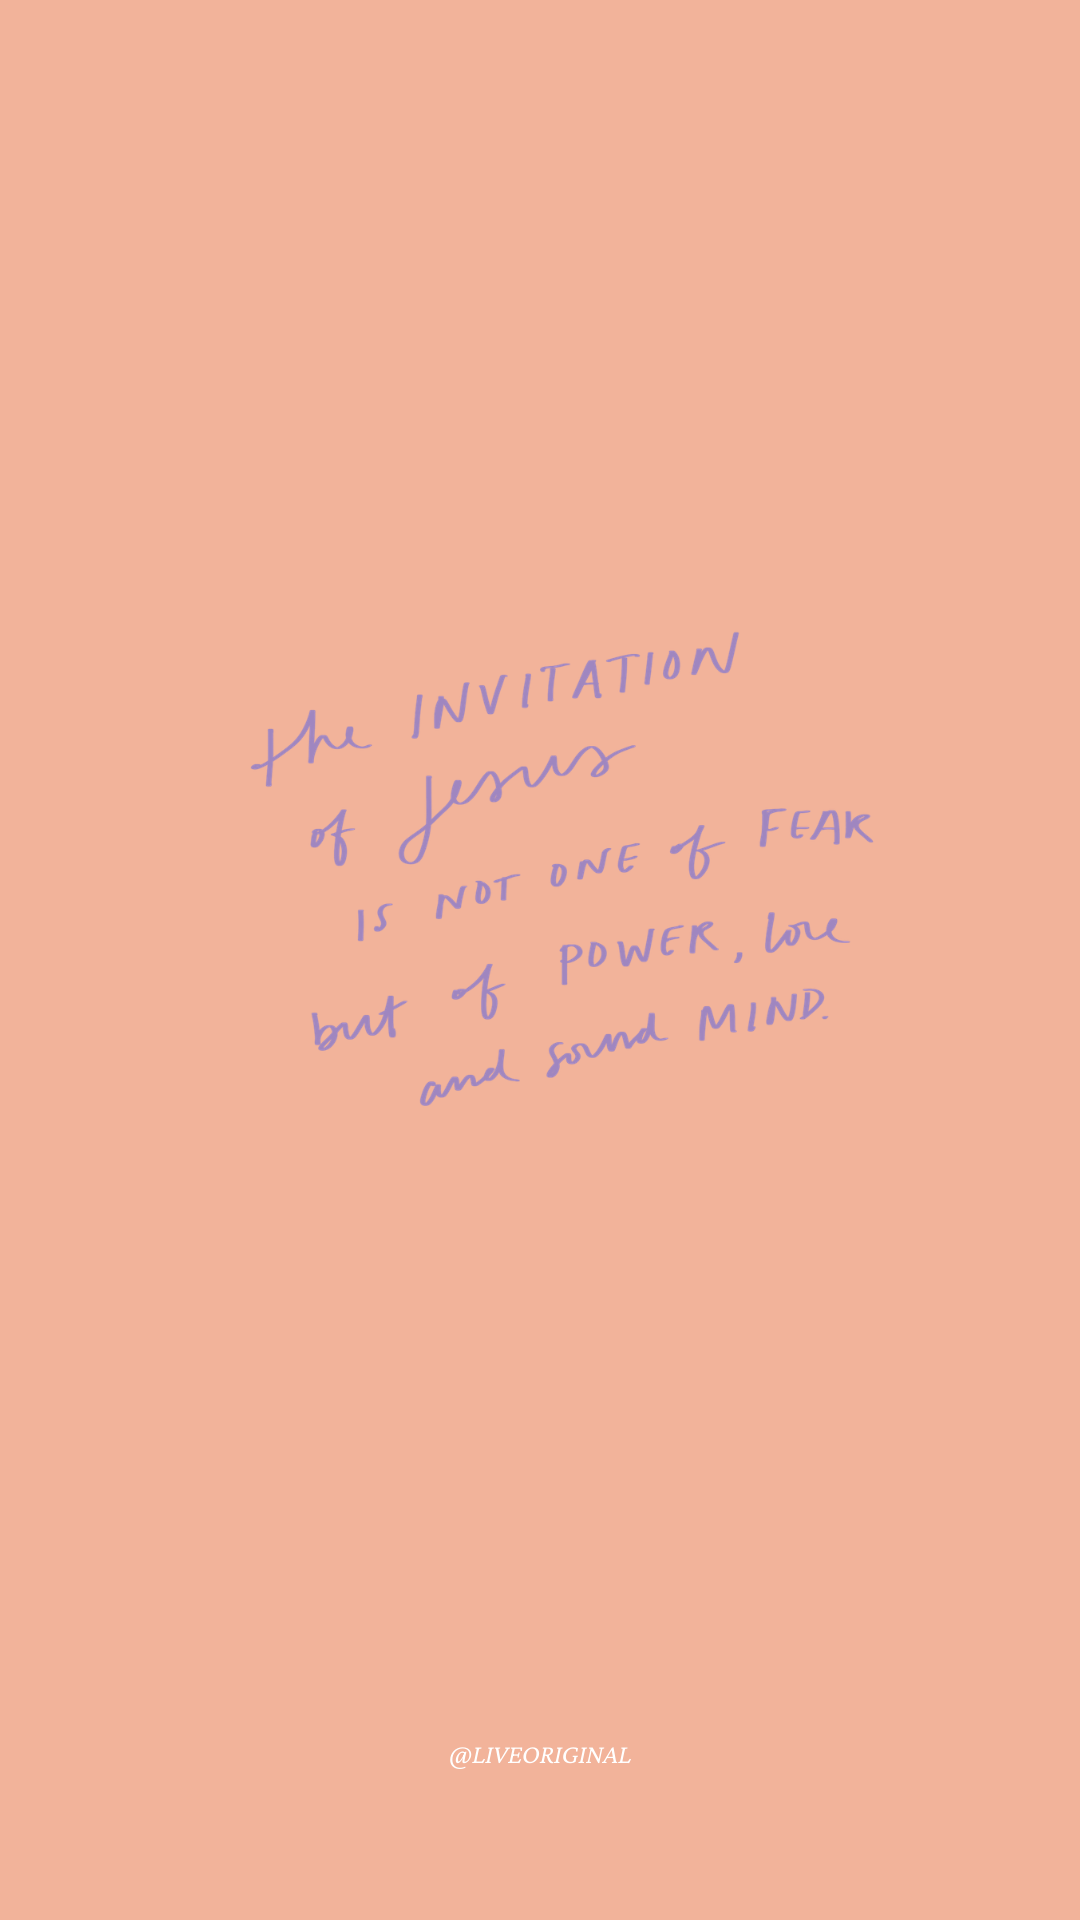 the INVITATION
of Jesus
IS NOT ONE of FEAR
but of POWER, love
and sound MIND.
@LIVEORIGINAL